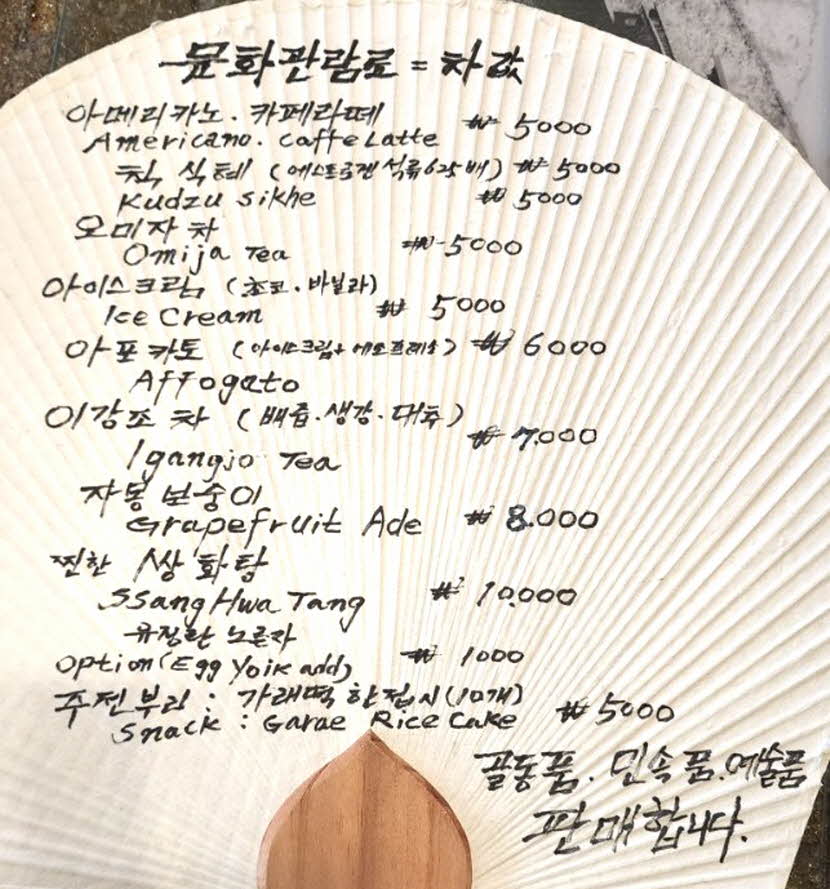 문화관람료 = 차값
아메리카노. 카페라떼 ₩ 5000
Americano. Caffe Latte
칙 식혜 (에스트로겐 석류625배) ₩ 5000
Kudzu Sikhe ₩ 5000
오미자 차
Omija Tea ₩ 5000
아이스크림 (초코. 바닐라)
Ice Cream ₩ 5000
아포카토 (아이스크림+에스프레소) ₩ 6000
Affogato
이강조 차 (배즙.생강.대추)
Igangjo Tea ₩ 7.000
자몽 보숭이
Grapefruit Ade ₩ 8.000
찐한 쌍화탕
SsangHwa Tang ₩ 10.000
유정란 노른자
option (Egg Yolk add) ₩ 1000
주전부리 : 가래떡 한접시(10개)
Snack : Garae Rice Cake ₩ 5000
골동품. 민속품.예술품
판매합니다.